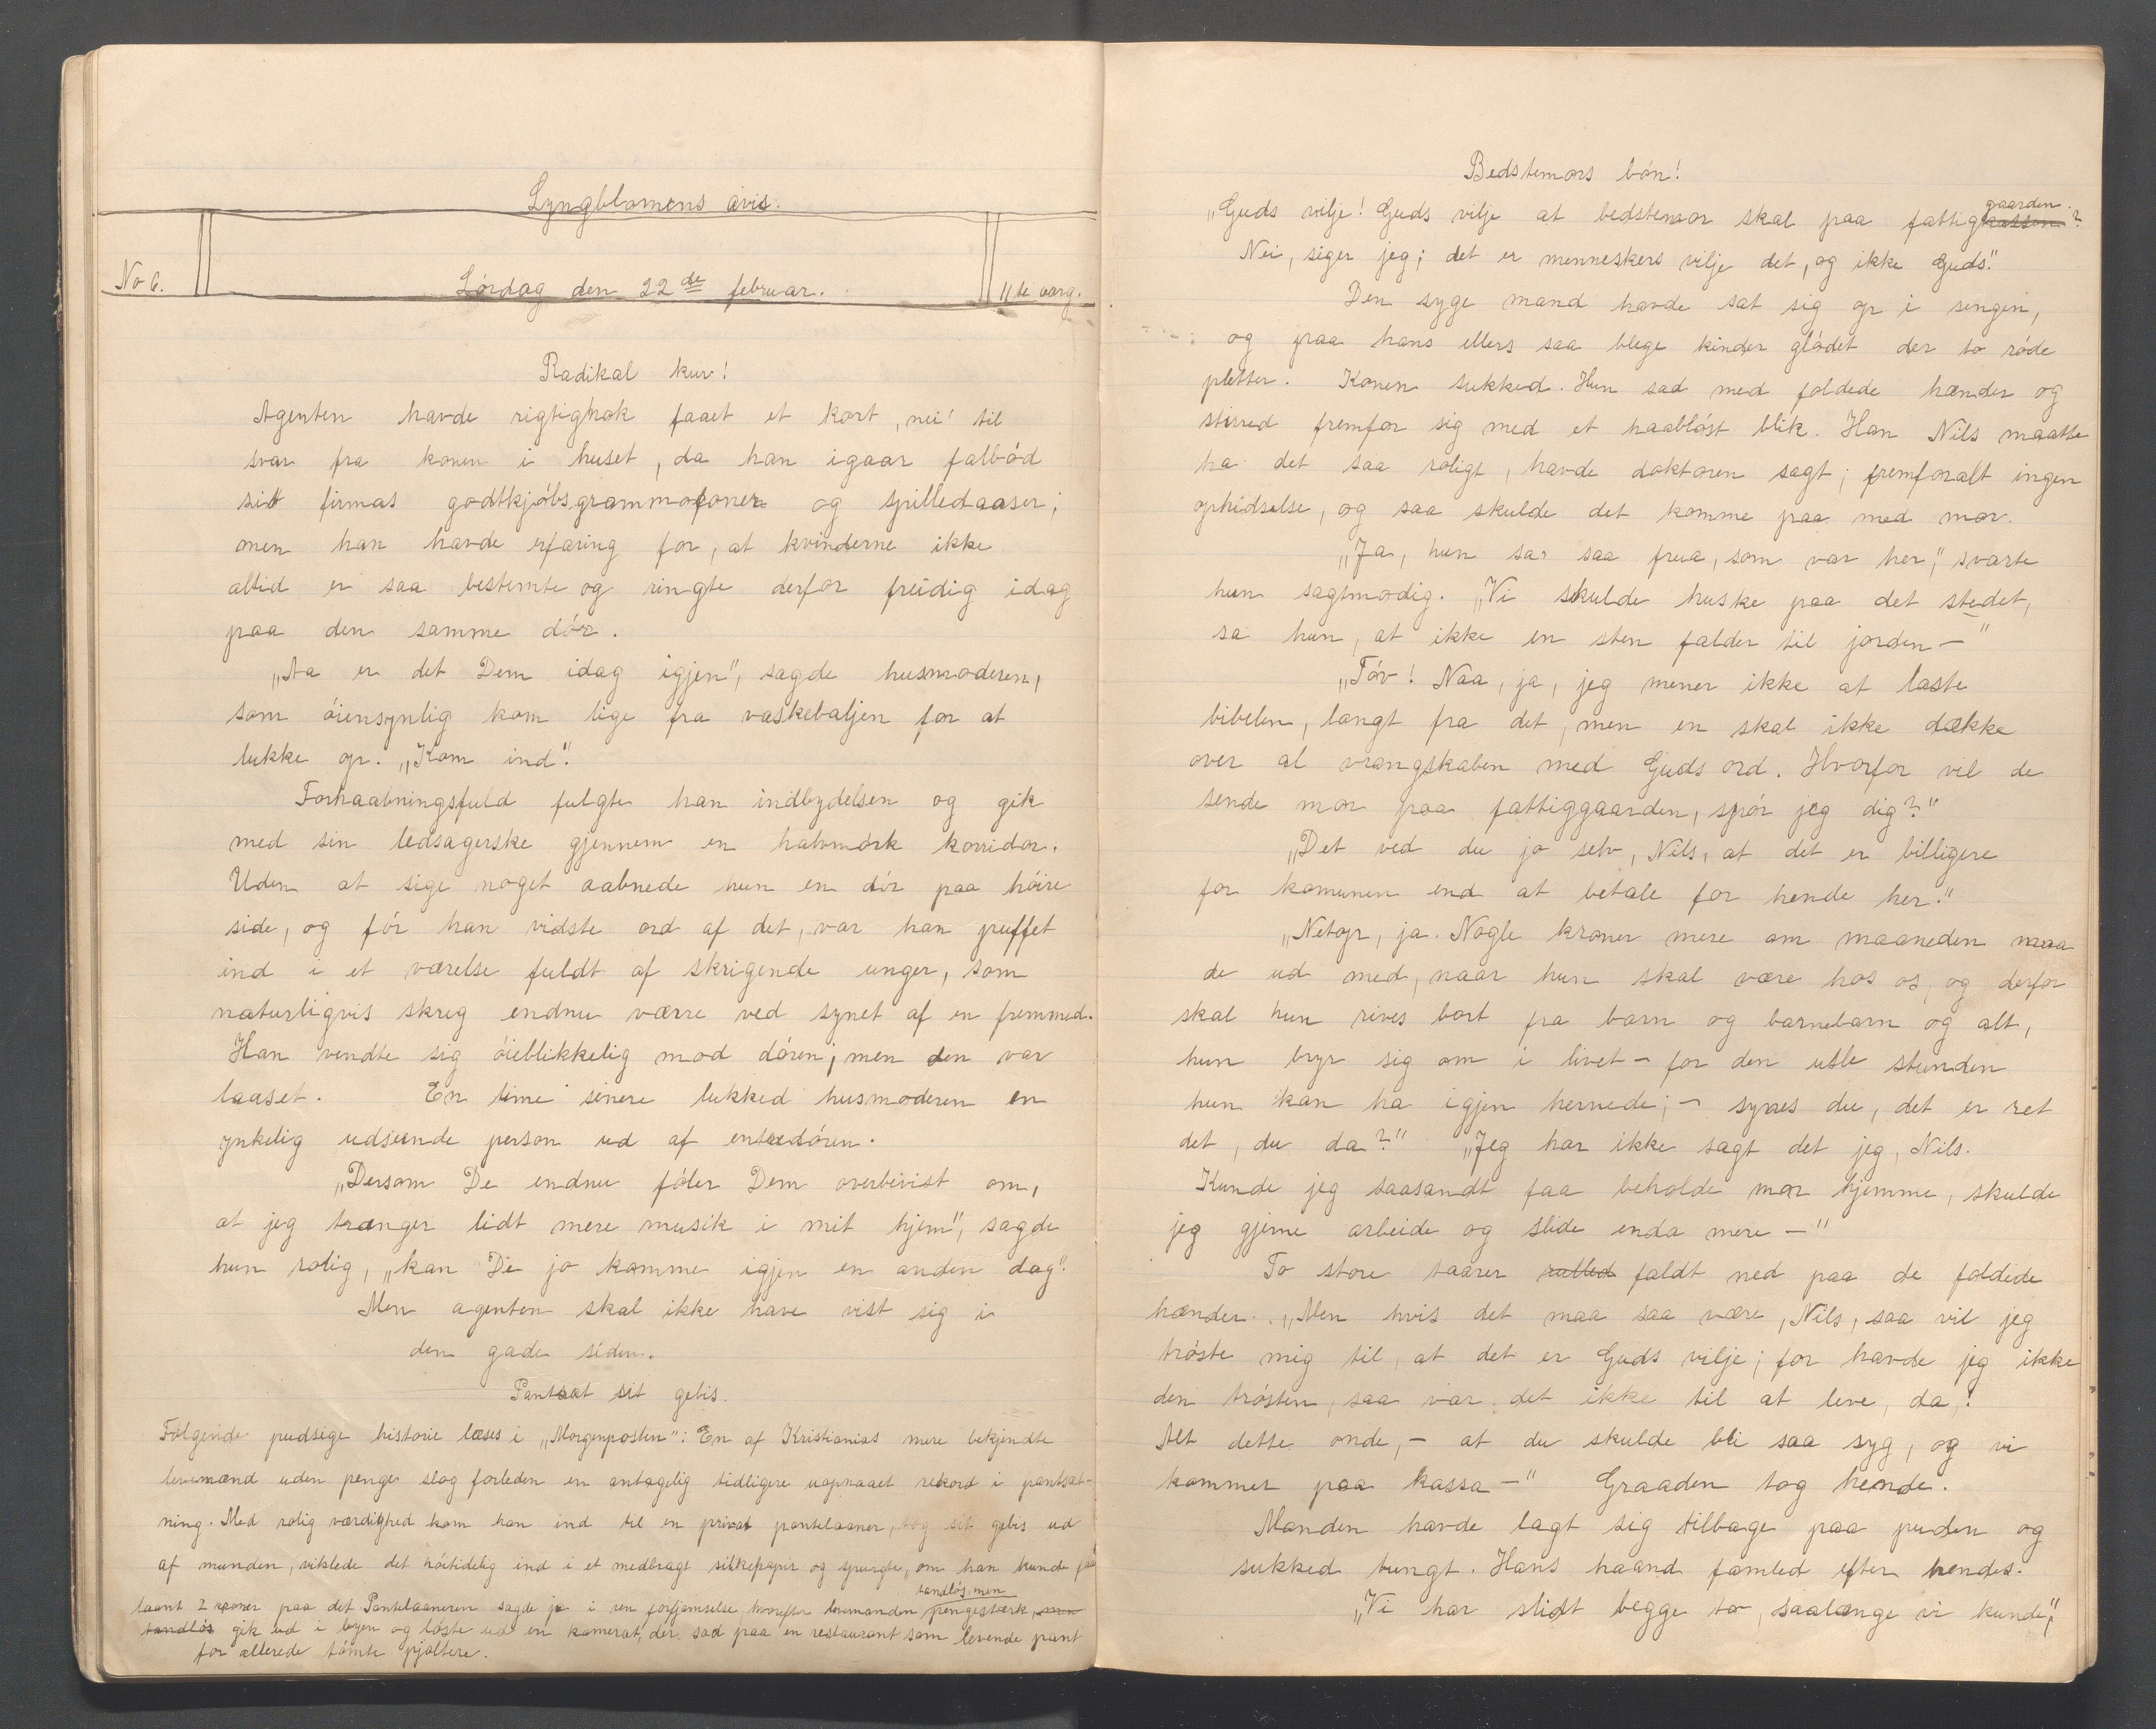 Lyngblomens avis.
No 6.
Lórdag den 22de februar.
11te aarg.
Radikal kur!
Agenten havde rigtignok faaet et kort, nei' til
svar fra konen i huset, da han igaar falbód
sit firmas godtkjóbsgrammofoner og spilledaaser;
men han havde erfaring for, at kvinderne ikke
altid er saa bestemte og ringte derfor freidig idag
paa den samme dór.
„Aa er det Dem idag igjen", sagde husmoderen,
som óiensynlig kom lige fra vaskebaljen for at
lukke op. „Kom ind".
Forhaabningsfuld fulgte han indbydelsen og gik
med sin ledsagerske gjennem en halvmórk korridor.
Uden at sige noget aabnede hun en dór paa hóire
side, og fór han vidste ord af det, var han puffet
ind i et værelse fuldt af skrigende unger, som
naturligvis skreg endnu værre ved synet af en fremmed.
Han vendte sig óieblikkelig mod dóren; men den var
laaset. En time senere lukked husmoderen en
ynkelig udseende person ud af entredóren.
„Dersom De endnu fóler Dem overbevist om,
at jeg trænger lidt mere musik i mit hjem", sagde
hun rolig, „kan De jo komme igjen en anden dag".
Men agenten skal ikke have vist sig i
den gade siden.
Pantsat sit gebis.
Fólgende pudsige historie læses i „Morgenposten": En af Kristianias mere bekjendte
levemænd uden penge slog forleden en antagelig tidligere uopnaaet rekord i pantsæt-
ning. Med rolig værdighed kom han ind til en privat pantelaaner, tog sit gebis ud
af munden, viklede det hóitidelig ind i et medbragt silkepapir og spurgte, om han kunde faa
laant 2 kroner paa det. Pantelaaneren sagde ja i ren forfjamselse, hvorefter levemanden tandlós, men pengestærk, men
tandlós gik ud i byen og lóste ud en kamerat, der sad paa en restaurant som levende pant
for allerede tómte pjoltere.
Bedstemors bón!
„Guds vilje! Guds vilje at bedstemor skal paa fattigkassen gaarden?
Nei, siger jeg; det er menneskers vilje det, og ikke Guds".
Den syge mand havde sat sig op i sengen,
og paa hans ellers saa blege kinder glódet der to róde
pletter. Konen sukked. Hun sad med foldede hænder og
stirred fremfor sig med et haablóst blik. Han Nils maatte
ha det saa roligt, havde doktoren sagt; fremforalt ingen
ophidselse, og saa skulde det komme paa med mor.
„Ja, hun sa' saa frua, som var her", svarte
hun sagtmodig. „Vi skulde huske paa det stedet,
sa hun, at ikke en sten falder til jorden —"
„Tóv! Naa, ja, jeg mener ikke at laste
bibelen, langt fra det, men en skal ikke dække
over al vrangskaben med Guds ord. Hvorfor vil de
sende mor paa fattiggaarden, spór jeg dig?"
„Det ved du jo selv, Nils, at det er billigere
for komunen end at betale for hende her."
„Netop, ja. Nogle kroner mere om maaneden maa
de ud med, naar hun skal være hos os, og derfor
skal hun rives bort fra barn og barnebarn og alt,
hun bryr sig om i livet – for den usle stunden
hun kan ha igjen hernede; – synes du, det er ret
det, du da?" „Jeg har ikke sagt det jeg, Nils.
Kunde jeg saasandt faa beholde mor hjemme, skulde
jeg gjerne arbeide og slide enda mere —"
To store taarer rulled faldt ned paa de foldede
hænder. „Men hvis det maa saa være, Nils, saa vil jeg
tróste mig til, at det er Guds vilje; for havde jeg ikke
den trósten, saa var det ikke til at leve, da!
Alt dette onde, – at du skulde bli saa syg, og vi
kommer paa kassa —" Graaden tog hende.
Manden havde lagt sig tilbage paa puden og
sukked tungt. Hans haand famled efter hendes.
„Vi har slidt begge to, saalænge vi kunde",